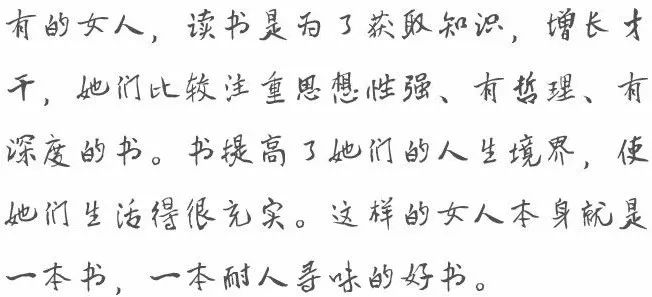 有的女人，读书是为了获取知识，增长才
干，她们比较注重思想性强、有哲理、有
深度的书。书提高了她们的人生境界，使
她们生活得很充实。这样的女人本身就是
一本书，一本耐人寻味的好书。